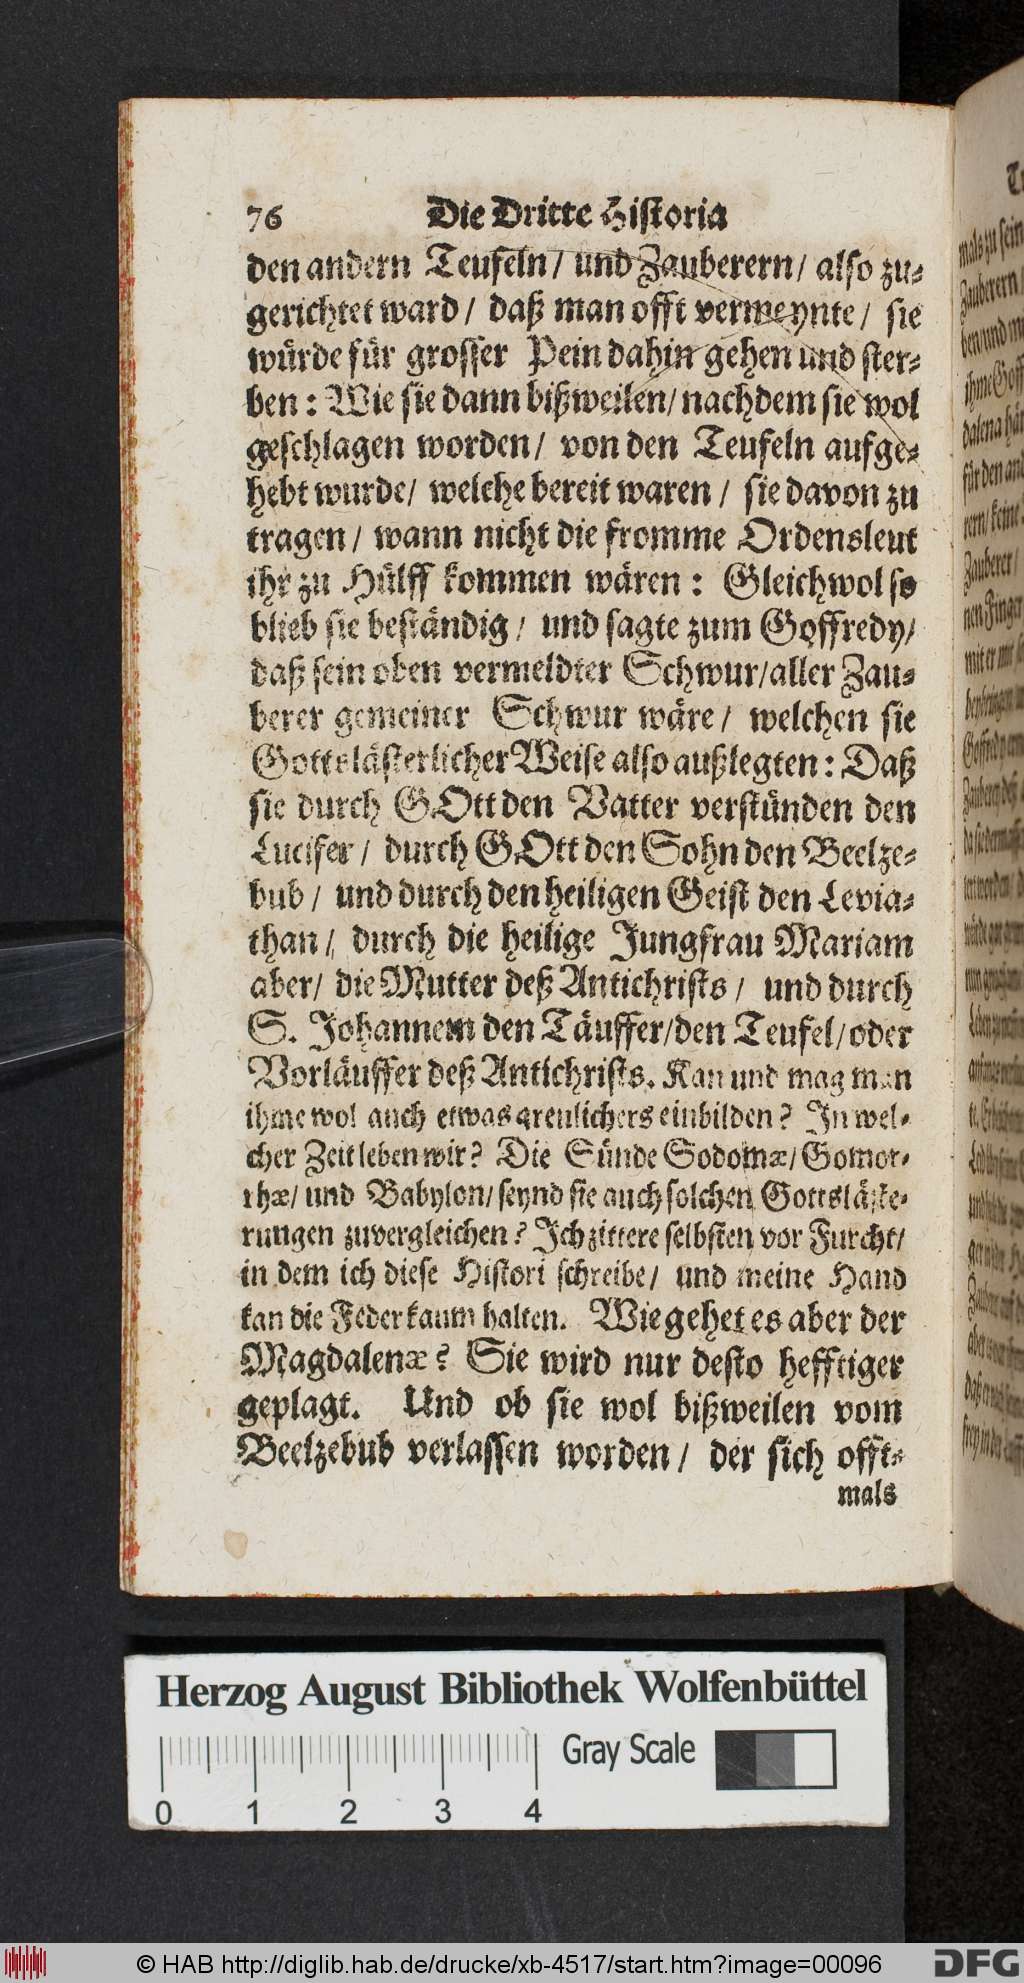 76 Die Dritte Historia
den andern Teufeln / und Zauberern / also zu-
gerichtet ward / daß man offt vermeynte / sie
würde für grosser Pein dahin gehen und ster-
ben : Wie sie dann bißweilen / nachdem sie wol
geschlagen worden / von den Teufeln aufge-
hebt wurde / welche bereit waren / sie davon zu
tragen / wann nicht die fromme Ordensleut
ihr zu Hülff kommen wären : Gleichwol so
blieb sie beständig / und sagte zum Goffredy /
daß sein oben vermeldter Schwur / aller Zau-
berer gemeiner Schwur wäre / welchen sie
Gottslästerlicher Weise also außlegten : Daß
sie durch GOtt den Vatter verstünden den
Lucifer / durch GOtt den Sohn den Beelze-
bub / und durch den heiligen Geist den Levia-
than / durch die heilige Jungfrau Mariam
aber / die Mutter deß Antichrists / und durch
S. Johannem den Täuffer / den Teufel / oder
Vorläuffer deß Antichrists. Kan und mag man
ihme wol auch etwas greulichers einbilden ? In wel-
cher Zeit leben wir ? Die Sünde Sodomæ / Gomor-
rhæ / und Babylon / seynd sie auch solchen Gottsläste-
rungen zuvergleichen ? Ich zittere selbsten vor Furcht /
in dem ich diese Histori schreibe / und meine Hand
kan die Feder kaum halten. Wie gehet es aber der
Magdalenæ ? Sie wird nur desto hefftiger
geplagt. Und ob sie wol bißweilen vom
Beelzebub verlassen worden / der sich offt-
mals
Herzog August Bibliothek Wolfenbüttel
Gray Scale
0 1 2 3 4
© HAB http://diglib.hab.de/drucke/xb-4517/start.htm?image=00096
DFG